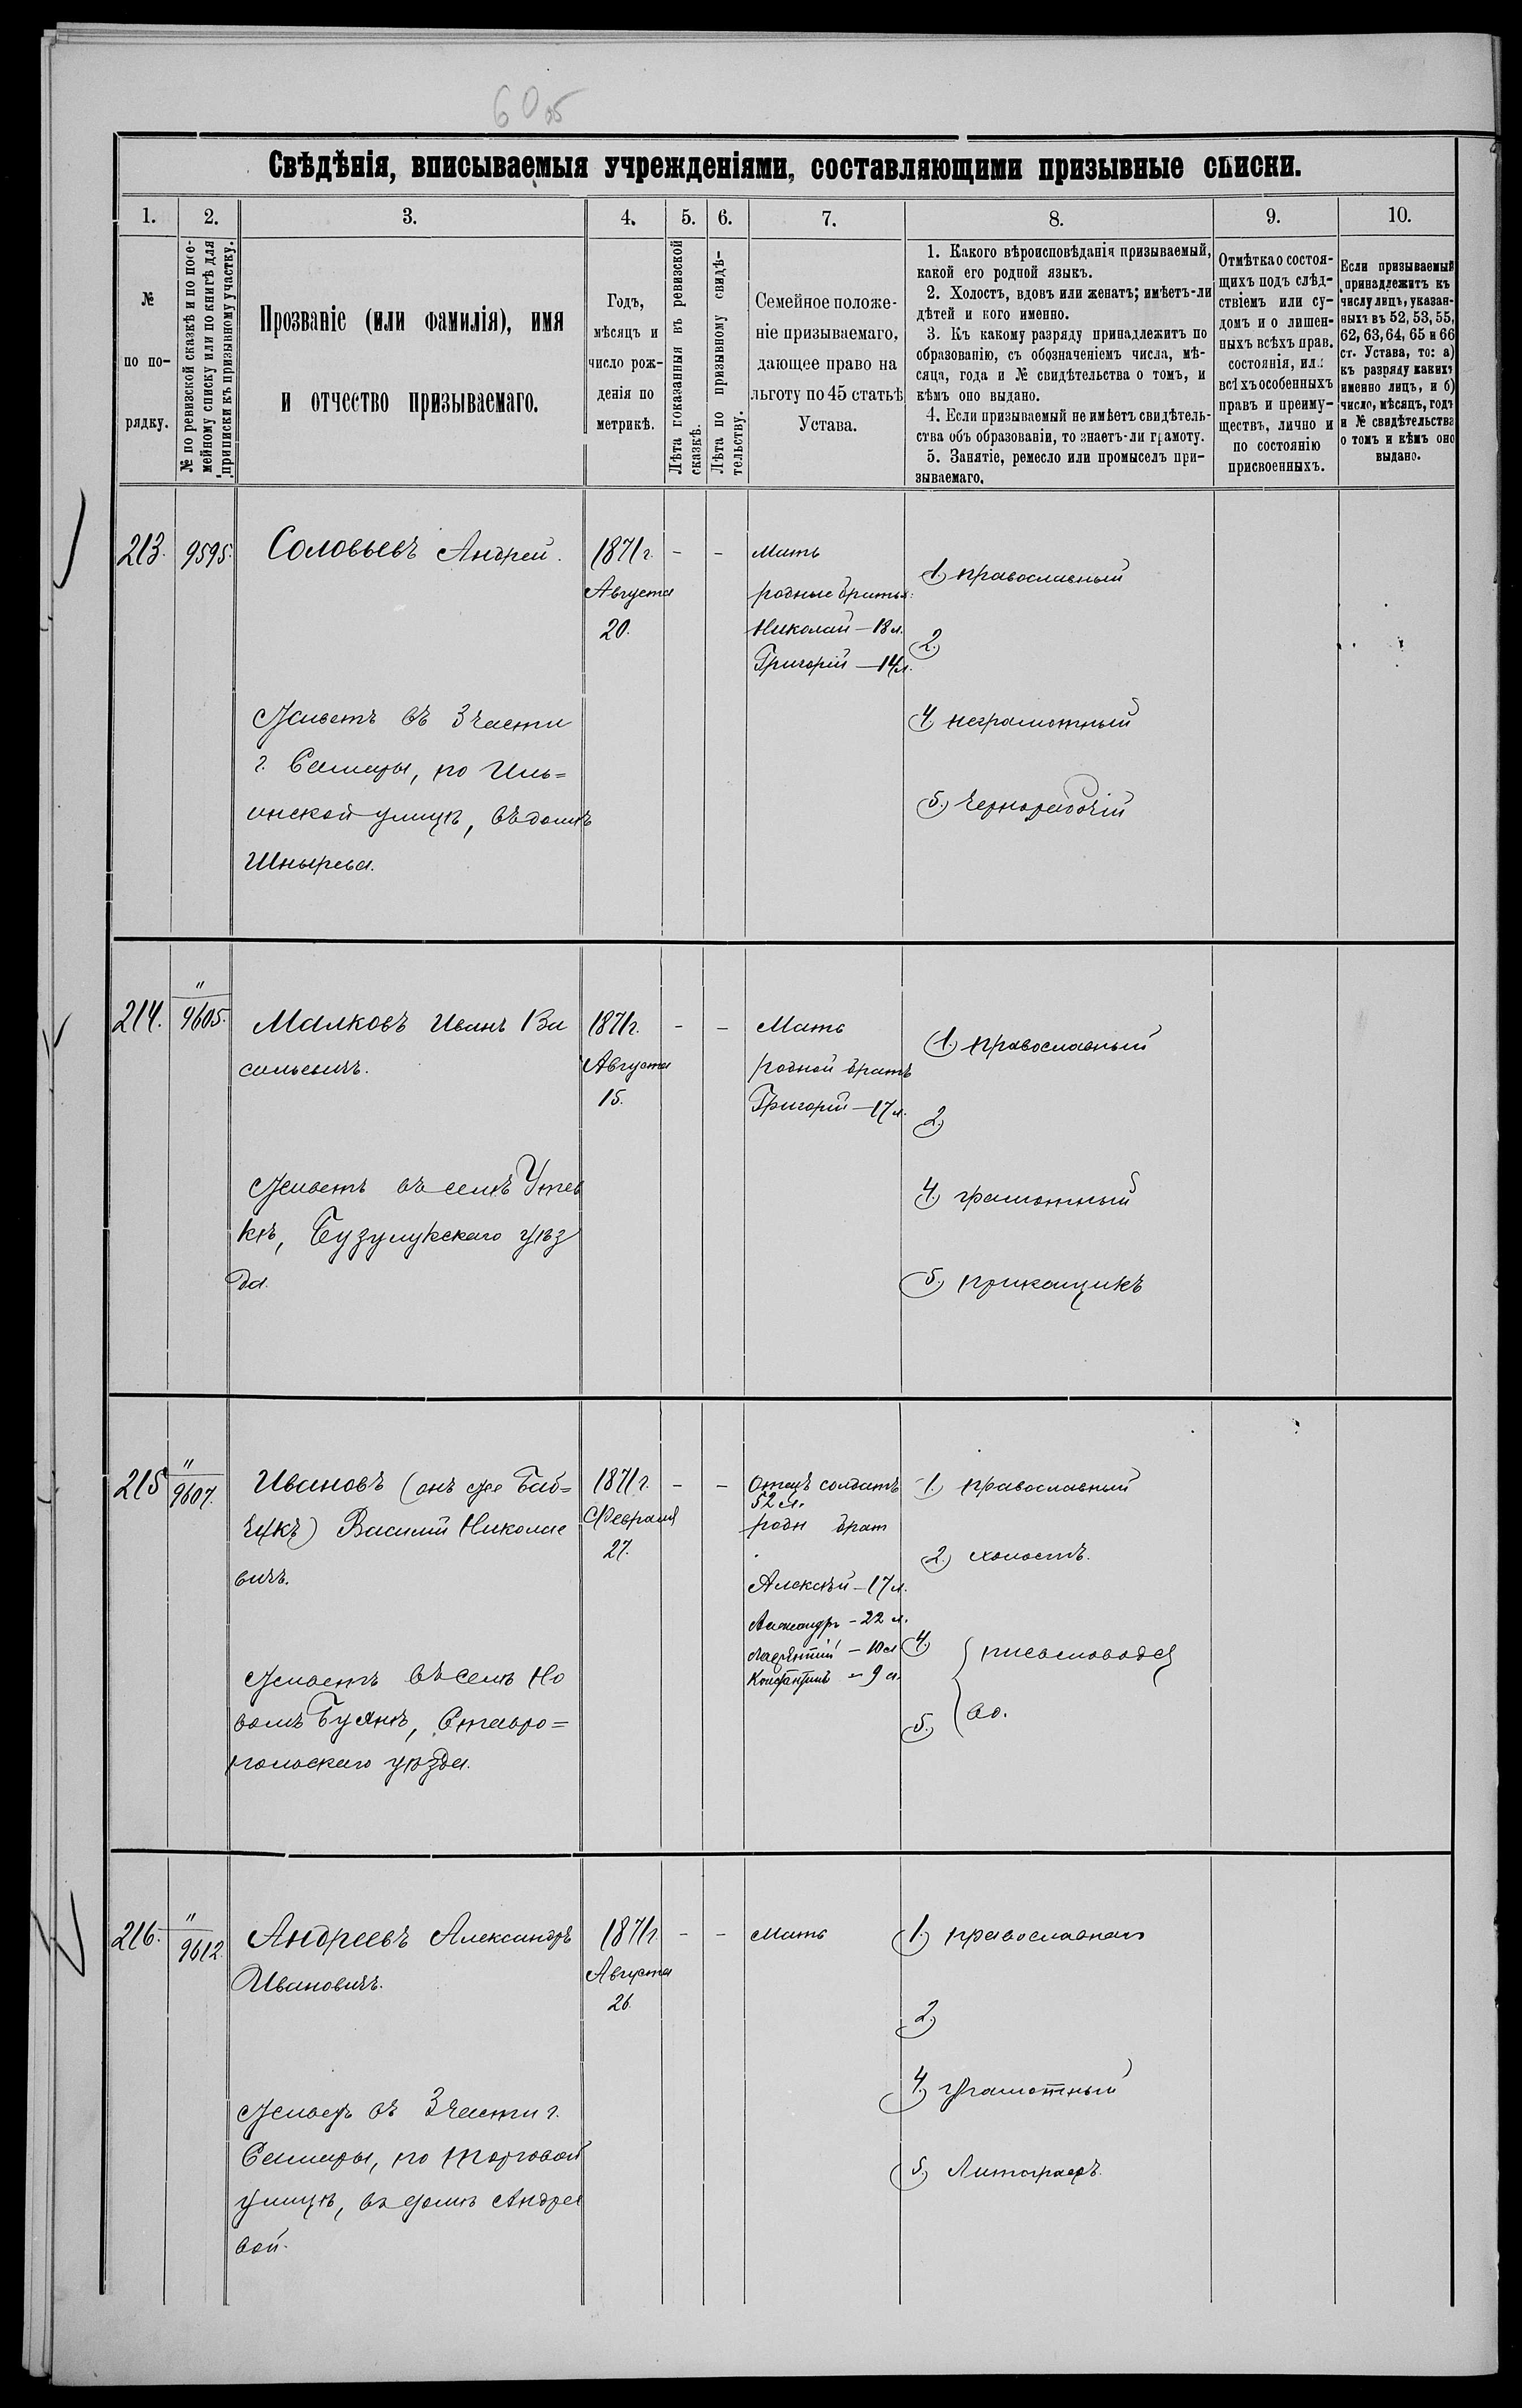 60об
Свѣдѣнія, вписываемыя учрежденіями, составляющими призывные списки.
1. 2. 3. 4. 5. 6. 7. 8. 9. 10.
№
по по-
рядку.
№ по ревизской сказкѣ и по посе-
мейному списку или по книгѣ для
приписки къ призывному участку.
Прозваніе (или фамилія), имя
и отчество призываемаго.
Годъ,
мѣсяцъ и
число рож-
денія по
метрикѣ.
Лѣта показанныя въ ревизской
сказкѣ.
Лѣта по призывному свидѣ-
тельству.
Семейное положе-
ніе призываемаго,
дающее право на
льготу по 45 статьѣ
Устава.
1. Какого вѣроисповѣданія призываемый,
какой его родной языкъ.
2. Холостъ, вдовъ или женатъ; имѣетъ-ли
дѣтей и кого именно.
3. Къ какому разряду принадлежитъ по
образованію, съ обозначеніемъ числа, мѣ-
сяца, года и № свидѣтельства о томъ, и
кѣмъ оно выдано.
4. Если призываемый не имѣетъ свидѣтель-
ства объ образованіи, то знаетъ-ли грамоту.
5. Занятіе, ремесло или промыселъ при-
зываемаго.
Отмѣтка о состоя-
щихъ подъ слѣд-
ствіемъ или су-
домъ и о лишен-
ныхъ всѣхъ прав.
состоянія, или
всѣхъ особенныхъ
правъ и преиму-
ществъ, лично и
по состоянію
присвоенныхъ.
Если призываемый
принадлежитъ къ
числу лицъ, указан-
ныхъ въ 52, 53, 55,
62, 63, 64, 65 и 66
ст. Устава, то: а)
къ разряду какихъ
именно лицъ, и б)
число, мѣсяцъ, годъ
и № свидѣтельства
о томъ и кѣмъ оно
выдано.
213. 9595. Соловьевъ Андрей.
1871 г.
Августа
20.
- -
Мать
родные братья:
Николай - 18 л.
Григорій - 14 л.
1) православный
2.)
4) неграмотный
5.) чернорабочій
Живетъ въ 3 части
г. Самары, по Иль=
инской улицѣ, въ домѣ
Шнырева.
214. "
9605. Малковъ Иванъ Ва
сильевичъ.
1871 г.
Августа
15.
- -
Мать
родной братъ
Григорій - 17 л.
1.) православный
2.)
4.) грамотный
5.) прикащикъ
Живетъ въ селѣ Утев
кѣ, Бузулукскаго уѣз
да.
215 "
9607. Ивановъ (онъ же Баб=
чукъ) Василій Николае
вичъ.
1871 г.
Февраля
27.
- -
Отецъ солдатъ
52 л.
родн брат
Алексѣй - 17 л.
Александръ - 22 л.
Лаврентій - 10 л
Константинъ - 9 л.
1.) православный
2.) холостъ.
4)
5.)
письмоводст
во.
Живетъ въ селѣ Но
вомъ Буянѣ, Ставро=
польскаго уѣзда.
216. "
9612. Андреевъ Александръ
Ивановичъ.
1871 г
Августа
26.
- -
Мать
1.) православный
2.)
4.) грамотный
5.) Литографъ.
Живетъ въ 3 части г.
Самары, по Торговой
улицѣ, въ домѣ Андрее
вой.